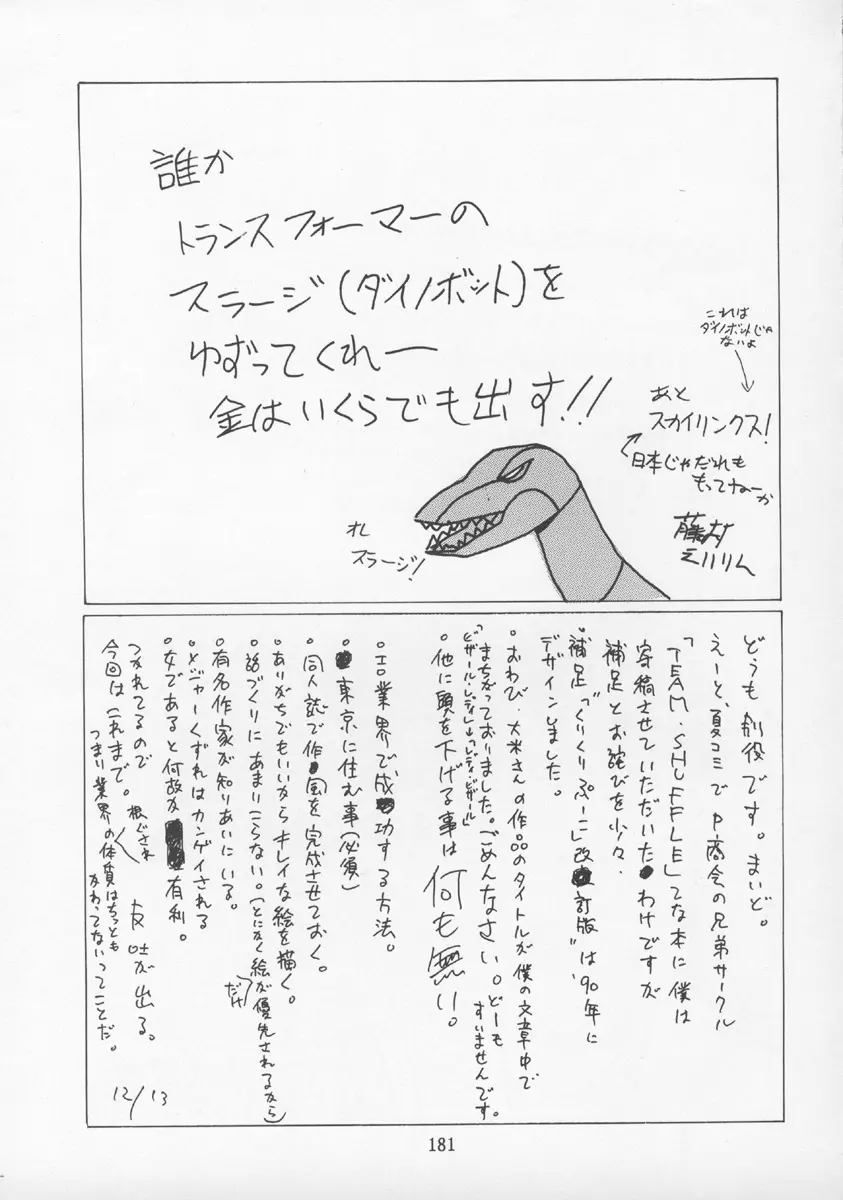 誰か
トランスフォーマーの
スラージ(ダイノボット)を
ゆずってくれー
金はいくらでも出す!!
これは
ダイノボットじゃ
ないよ
あと
スカイリンクス!
日本じゃだれも
もってねーか
オレ
スラージ!
藤村
えいりん
どうも 削役です。まいど。
えーと、夏コミでP商会の兄弟サークル
「TEAM・SHUFFLE」てな本に僕は
寄稿させていただいたわけですが
補足とお詫びを少々.
°補足 “くりくりぷーこ改訂版”は'90年に
デザインしました。
°おわび・大米さんの作品のタイトルが僕の文章中で
まちがっておりました。ごめんなさい。どーも
すいませんです。
「ビザール・レディ」→「レディ・ビザール」
°他に頭を下げる事は何も無い。
°エロ業界で、成功する方法。
東京に住む事(必須)
°同人誌で作風を完成させておく。
°ありがちでもいいからキレイな絵を描く。
°話づくりにあまりこらない。(とにかく絵だけが優先されるから)
°有名作家が知りあいにいる。
°メジャーくずれはカンゲイされる
°女であると何故か有利。
つかれてるので
今回はこれまで。
根ぐされ
反吐が出る。
つまり業界の体質はちっとも
かわってないってことだ。
12/13
181